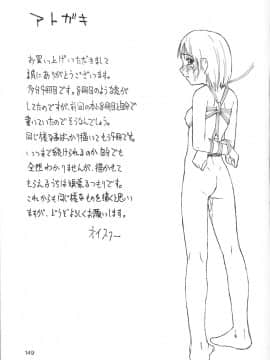 アトガキ
お買い上げいただきまして
誠にありがとうございます。
多分9冊目です。8冊目のような気が
してたのですが、前回の本に8冊目と自分で
書いていたのでそうなんでしょう。
同じ様な話ばっかり描いてもう9冊です。
いつまで続けられるのか自分でも
全然わかりませんが、描かせて
もらえるうちは頑張るつもりです。
これからも同じ様なものを描くと思い
ますが、どうぞよろしくお願いします。
ネイスァー
149